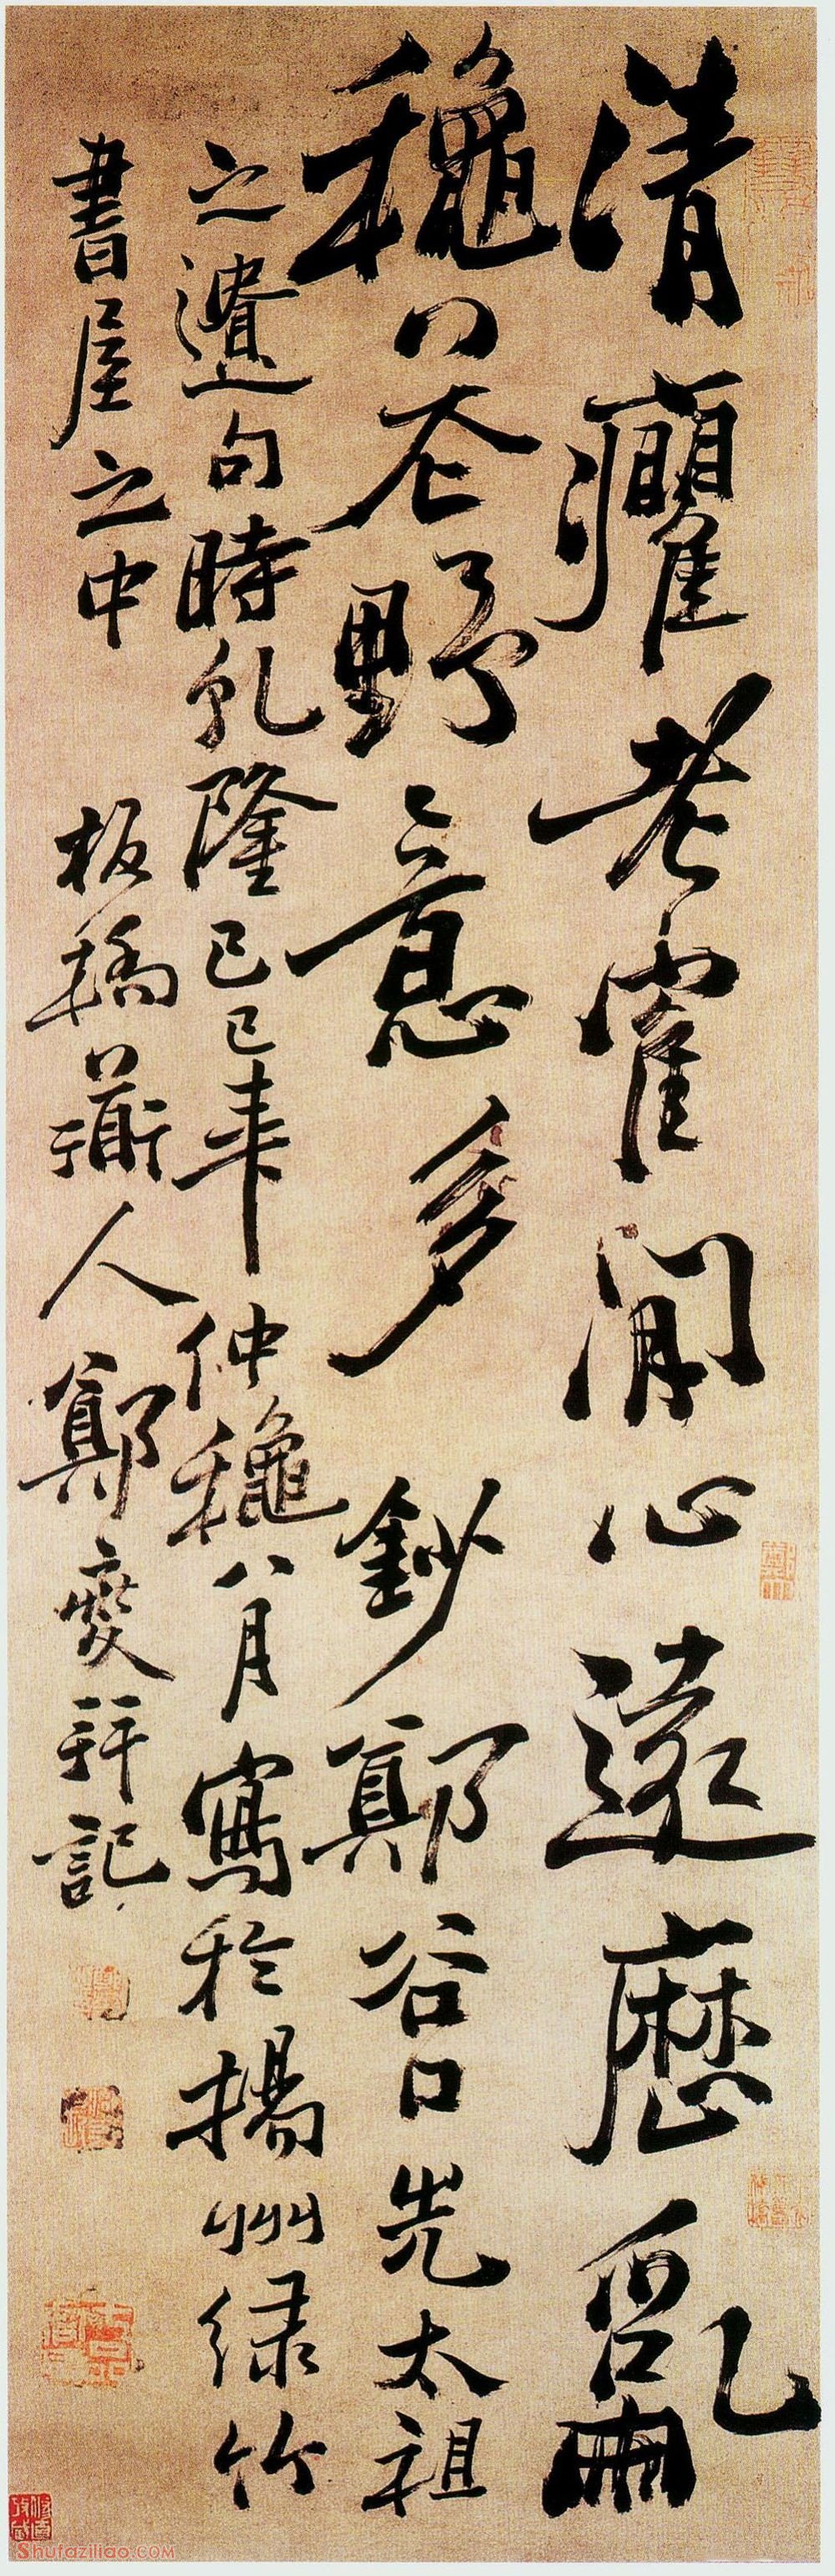 清癯老寉閒心遠歷亂
龝花野意多 鈔鄭谷口先太祖
之遺句時乾隆己巳年仲龝八月寫於揚州綠竹
書屋之中 板橋衜人鄭燮拜記
Shufaziliao.COM